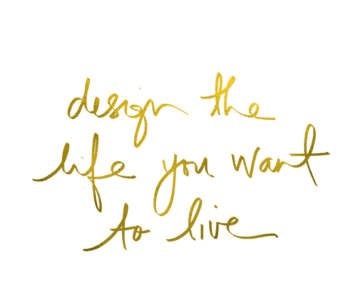 design the
life you want
to live